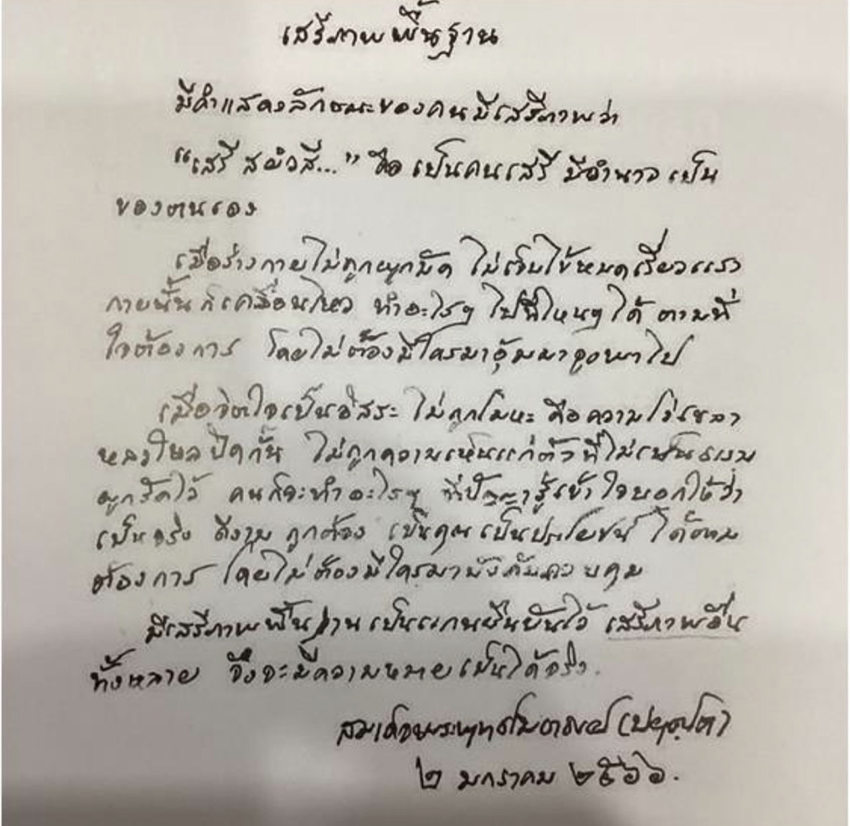 เสรีภาพพื้นฐาน
มีคำแสดงลักษณะของคนมีเสรีภาพว่า
“เสรี สยํวสี...” คือ เป็นคนเสรี มีอำนาจ เป็น
ของตนเอง
เมื่อร่างกายไม่ถูกผูกมัด ไม่เจ็บไข้หมดเรี่ยวแรง
กายนั้น ก็เคลื่อนไหว ทำอะไรๆ ไปที่ไหนๆ ได้ ตามที่
ใจต้องการ โดยไม่ต้องมีใครมาอุ้มมาจูงพาไป
เมื่อจิตใจเป็นอิสระ ไม่ถูกโมหะ คือความโง่เขลา
หลงใหล ปิดกั้น ไม่ถูกความเห็นแก่ตัวที่ไม่เป็นธรรม
ผูกรัดไว้ คนก็จะทำอะไรๆ ที่ปัญญารู้เข้าใจบอกให้ว่า
เป็นจริง ดีงาม ถูกต้อง เป็นคุณ เป็นประโยชน์ ได้ตาม
ต้องการ โดยไม่ต้องมีใครมาบังคับควบคุม
มีเสรีภาพพื้นฐานเป็นแกนยืนยันไว้ เสรีภาพอื่น
ทั้งหลาย จึงจะมีความหมายเป็นได้จริง.
สมเด็จพระพุทธโฆษาจารย์ (ป.อ.ปยุตฺโต)
๒ มกราคม ๒๕๖๖.